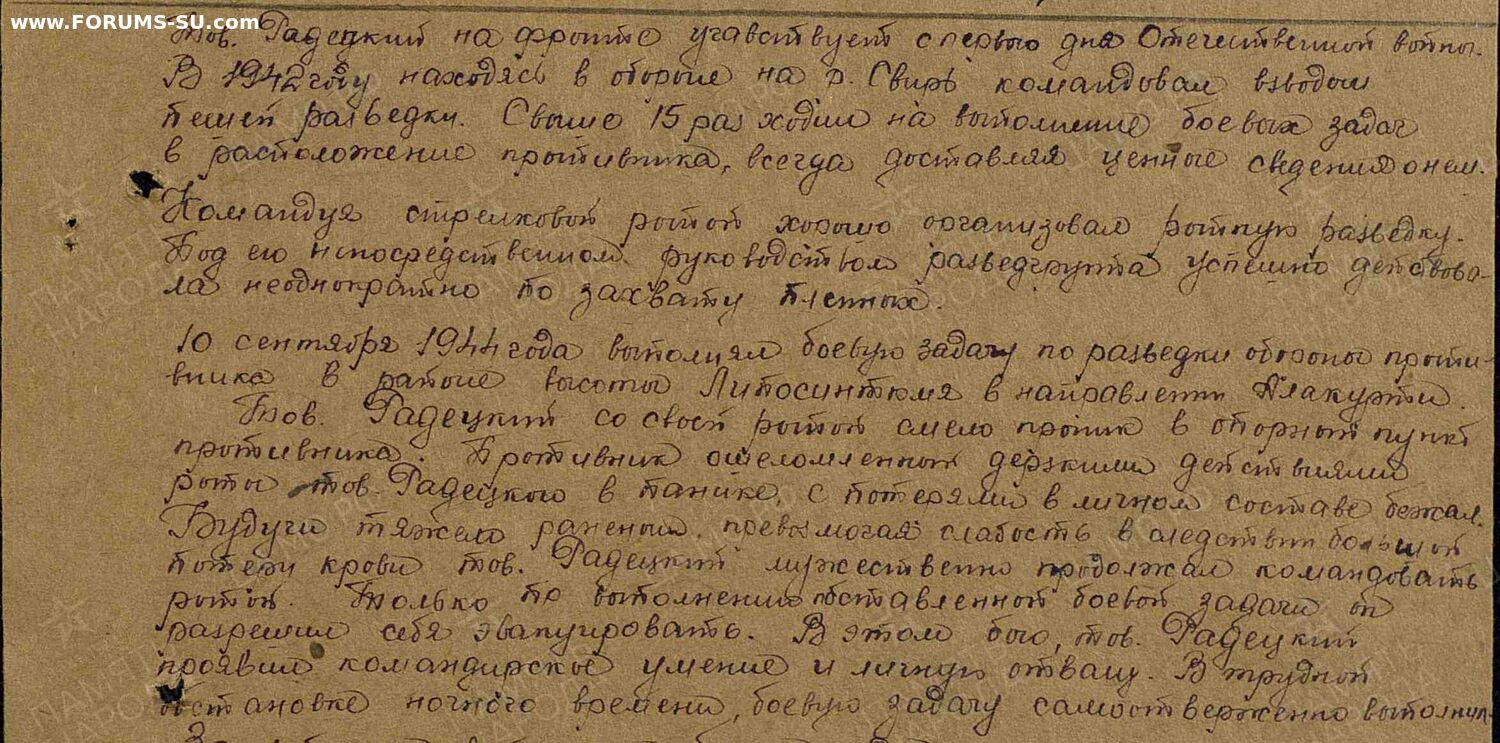 www.FORUMS-SU.com
Тов. Радецкий на фронте учавствует с первого дня Отечественной войны.
В 1942 году находясь в обороне на р. Свирь командовал взводом
пешей разведки. Свыше 15 раз ходил на выполнение боевых задач
в расположение противника, всегда доставляя ценные сведения о нем.
Командуя стрелковой ротой хорошо организовал ротную разведку.
Под его непосредственном руководством разведгруппа успешно действова-
ла неоднократно по захвату пленных.
10 сентября 1944 года выполнял боевую задачу по разведки обороны проти-
вника в районе высоты в направлении Алакуртти.
Тов. Радецкий со своей ротой смело проник в опорный пункт
противника. Противник ошеломленный дерзкими действиями
роты тов. Радецкого в панике, с потерями в личном составе бежал.
Будучи тяжело раненым, превозмогая слабость в следствии большой
потери крови тов. Радецкий мужественно продолжал командовать
ротой. Только по выполнению поставленной боевой задачи он
разрешил себя эвакуировать. В этом бою, тов. Радецкий
проявил командирское умение и личную отвагу. В трудной
обстановке ночного времени, боевую задачу самоотверженно выполнил.